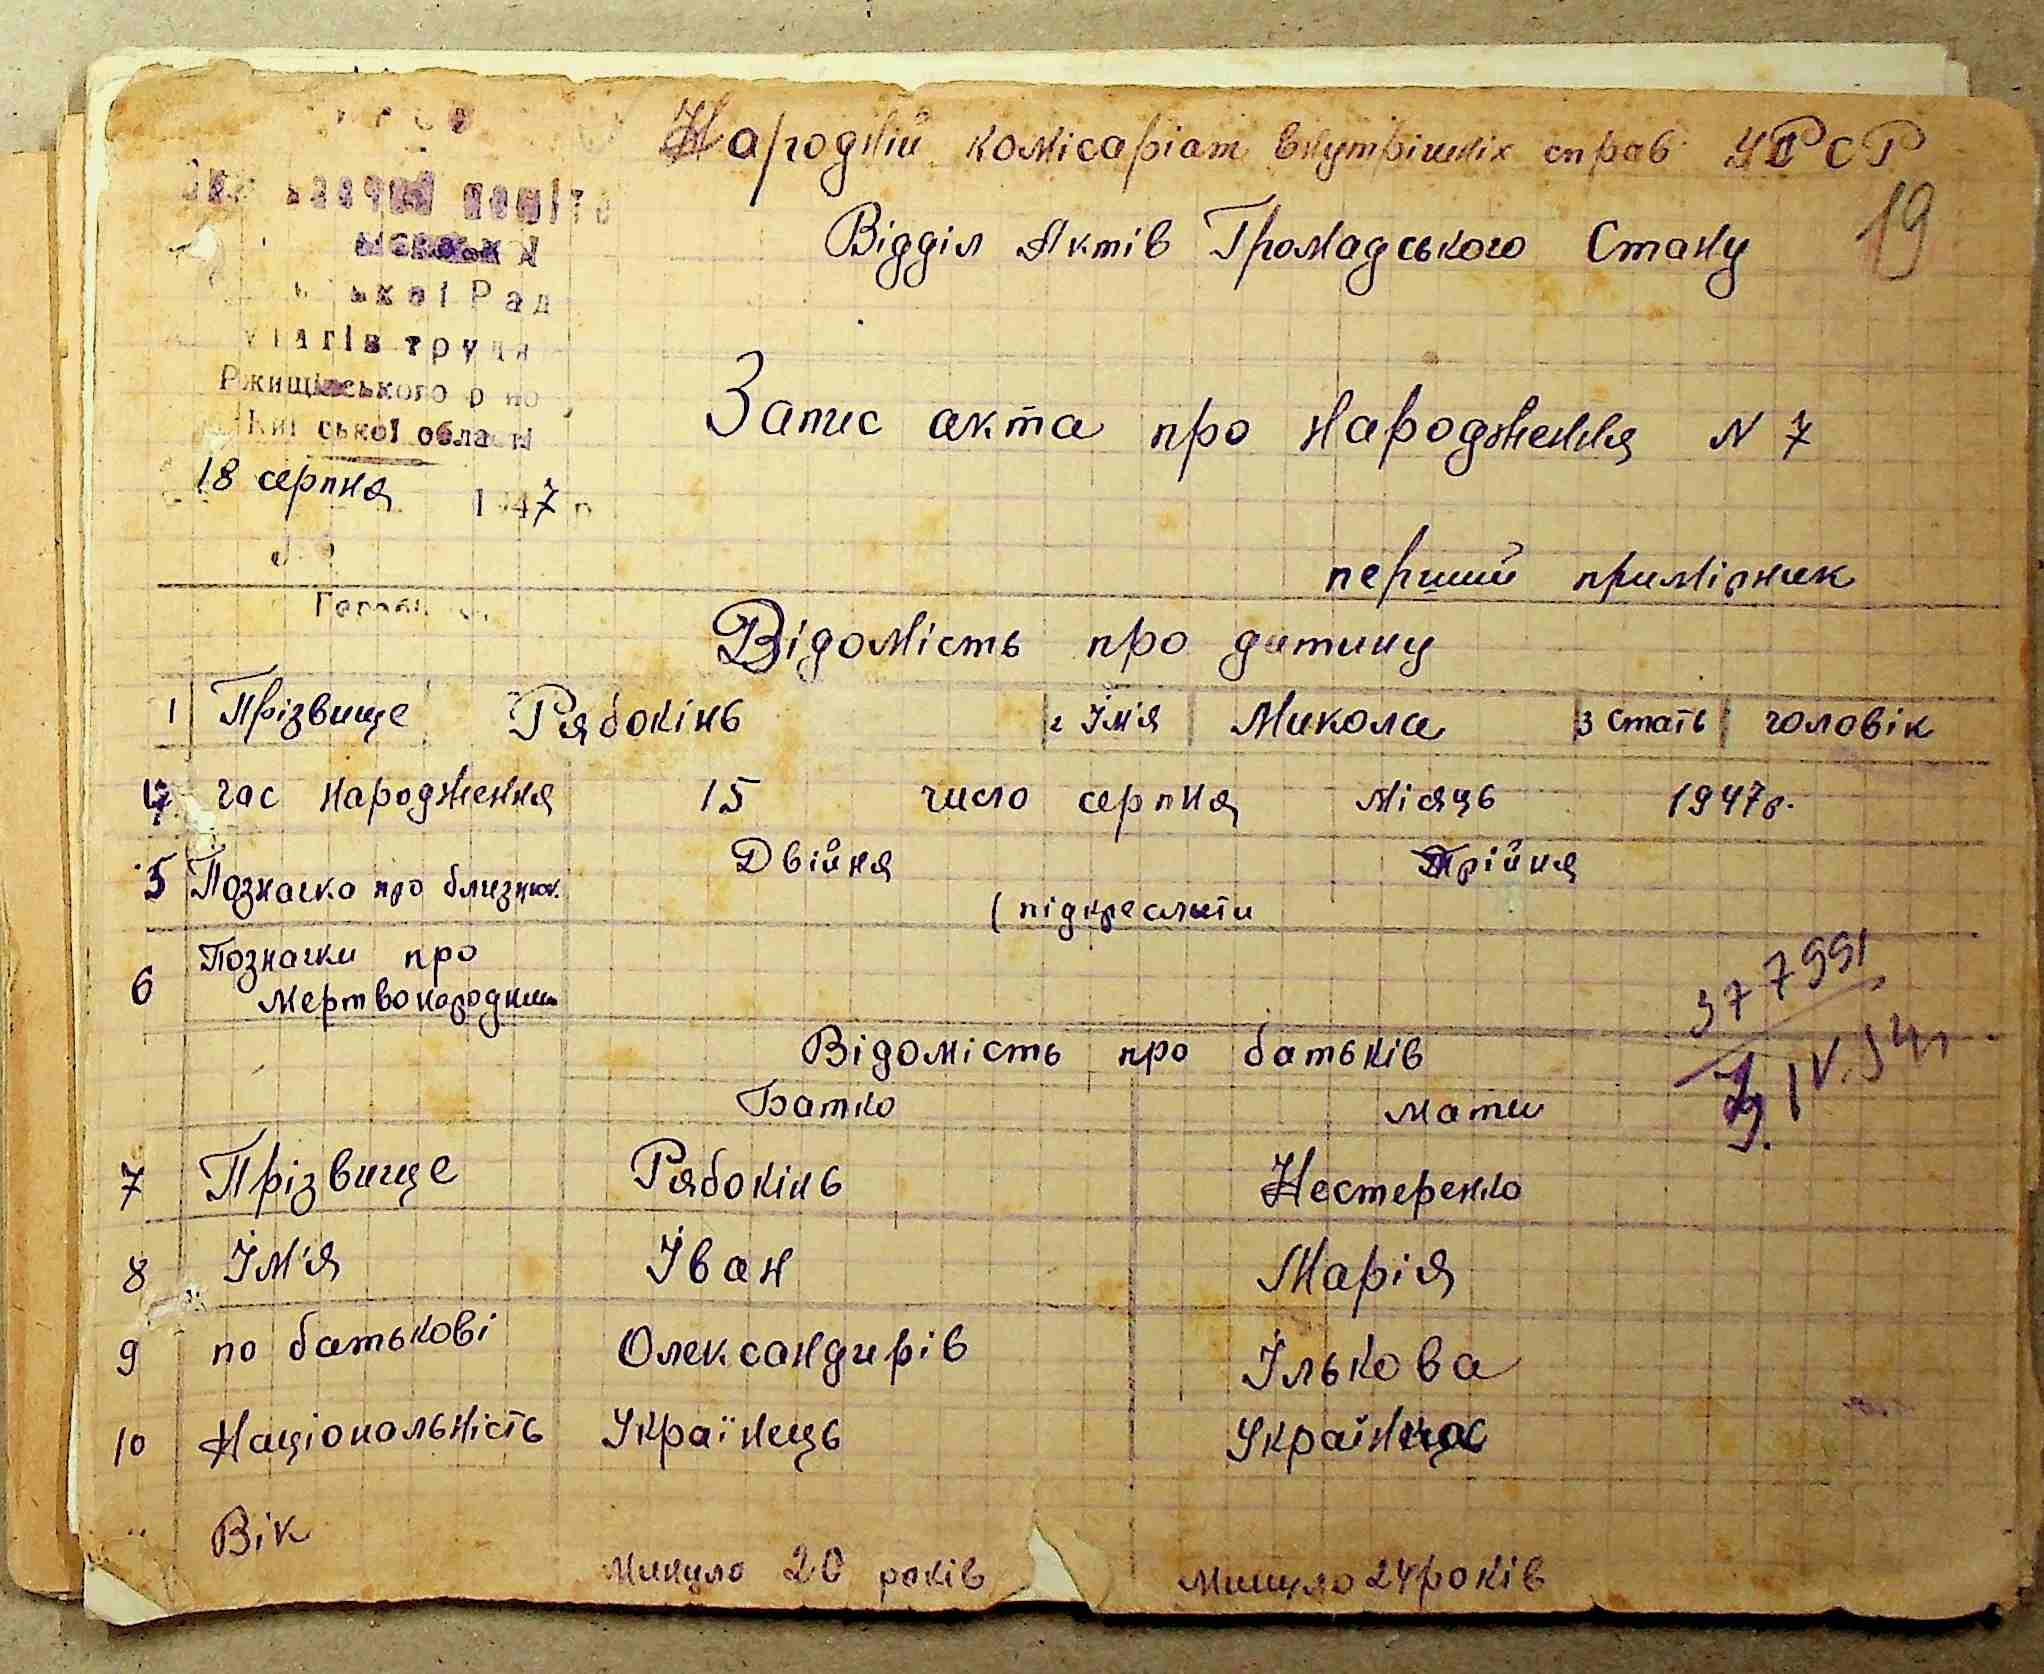 Народній комісаріат внутрішніх справ УРСР
19
Відділ Актів Громадського Стану
Ржищівського р но
ської області
18 серпня 1947
Запис акта про народження N 7
перший примірник
Відомість про дитину
1 Прізвище Рябокінь 2 Ім'я Микола 3 стать чоловік
4 час народження 15 число серпня місяць 1947р.
5 Позначка про близнюк. Двійня Трійня
(підкреслити
6 Позначки про
мертвонародним
377991
Відомість про батьків
IV.54р
Батко мати
7 Прізвище Рябокінь Нестеренко
8 Ім'я Іван Марія
9 по батькові Олександирів Ількова
10 Національність Українець Українца
Вік Минуло 20 років Минуло 24 років